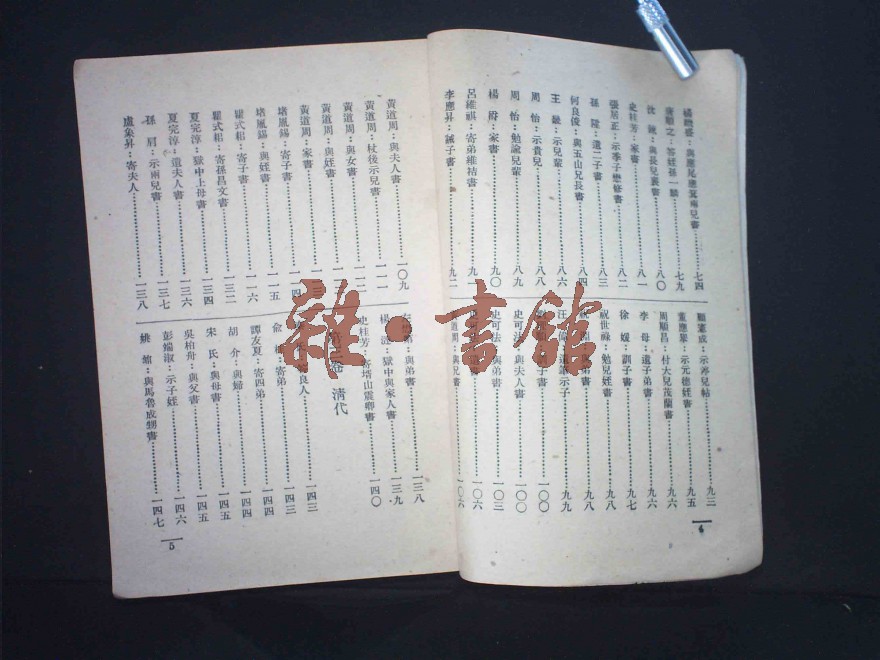 楊繼盛：與應尾應箕兩兒書…………七四
唐順之：答姪孫一麟…………七九
沈鍊：與長兒襄書…………八〇
史桂芳：家書…………八一
張居正：示季子懋修書…………八二
孫陞：遺二子書…………八三
何良俊：與五山兄長書…………八四
王　：示兒輩…………八六
周怡：示貴兒…………八八
周怡：勉諭兒輩…………八九
楊爵：家書…………九〇
呂維祺：寄弟維祮書…………九一
李應昇：誡子書…………九二
顧憲成：示淳兒帖…………九三
董應舉：示元德姪書…………九五
周順昌：付大兒茂蘭書…………九六
李母：遺子弟書…………九六
徐媛：訓子書…………九七
祝世祿：勉兒姪書…………九八
九八
汪偉：遺筆示子…………九九
子書…………一〇〇
史可法：與夫人書…………一〇〇
史可法：與弟書…………一〇三
一〇六
道周：與兄書…………一〇六
4
黃道周：與夫人書…………一〇九
黃道周：杖後示兒書…………一一一
黃道周：與女書…………一一二
黃道周：與姪書…………一一三
黃道周：家書…………一一三
堵胤錫：寄子書…………一一四
堵胤錫：與姪書…………一一五
瞿式耜：寄子書…………一一六
瞿式耜：寄孫昌文書…………一三二
夏完淳：獄中上母書…………一三四
夏完淳：遺夫人書…………一三六
孫肩：示兩兒書…………一三七
盧象昇：寄夫人…………一三八
與弟書…………一三八
楊漣：獄中與家人書…………一三九
史桂芳：寄塔山震卿書…………一四〇
卷　清代
寄良人…………一四三
俞　：寄弟…………一四三
譚友夏：寄四弟…………一四四
胡介：與歸…………一四四
宋氏：與母書…………一四五
吳柏舟：與父書…………一四五
彭端淑：示子姪…………一四六
姚鼐：與馬魯成甥書…………一四七
5
雜·書館